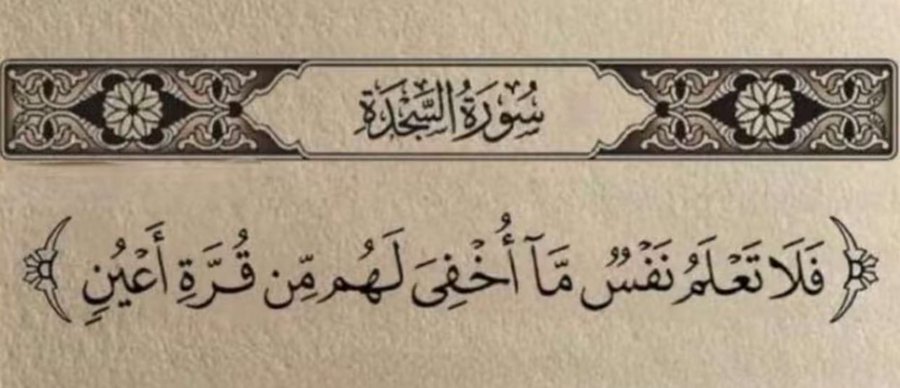 سُورَةُ السَّجْدَةِ
فَلَا تَعْلَمُ نَفْسٌ مَّآ أُخْفِيَ لَهُم مِّن قُرَّةِ أَعْيُنٍ